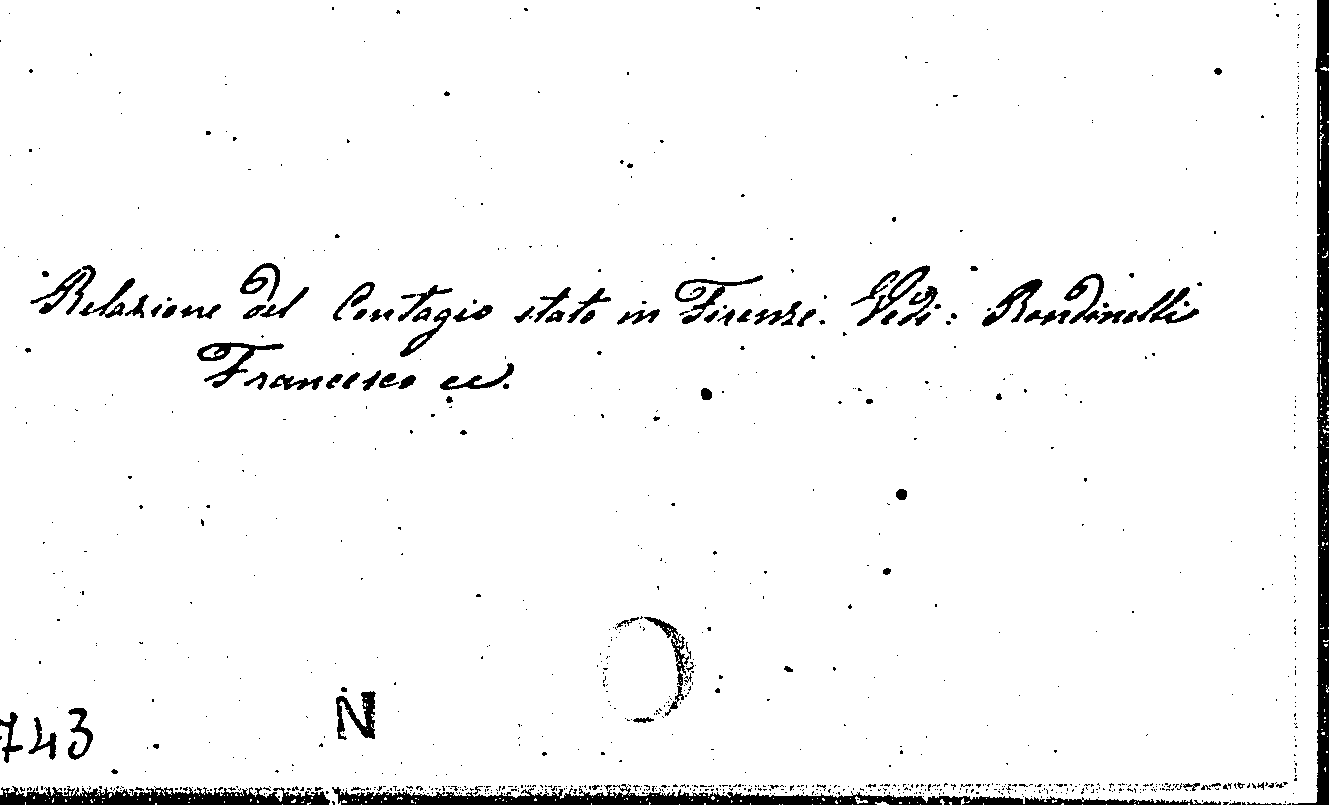 Relazione del Contagio stato in Firenze. Vedi: Rondinelli
Francesco ec.
743
N